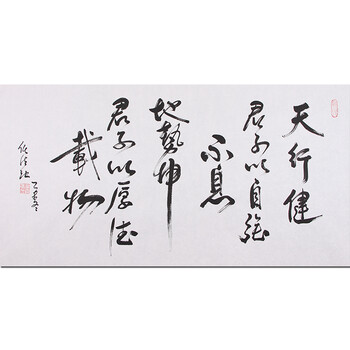 天行健
君子以自強
不息
地勢坤
君子以厚德
載物